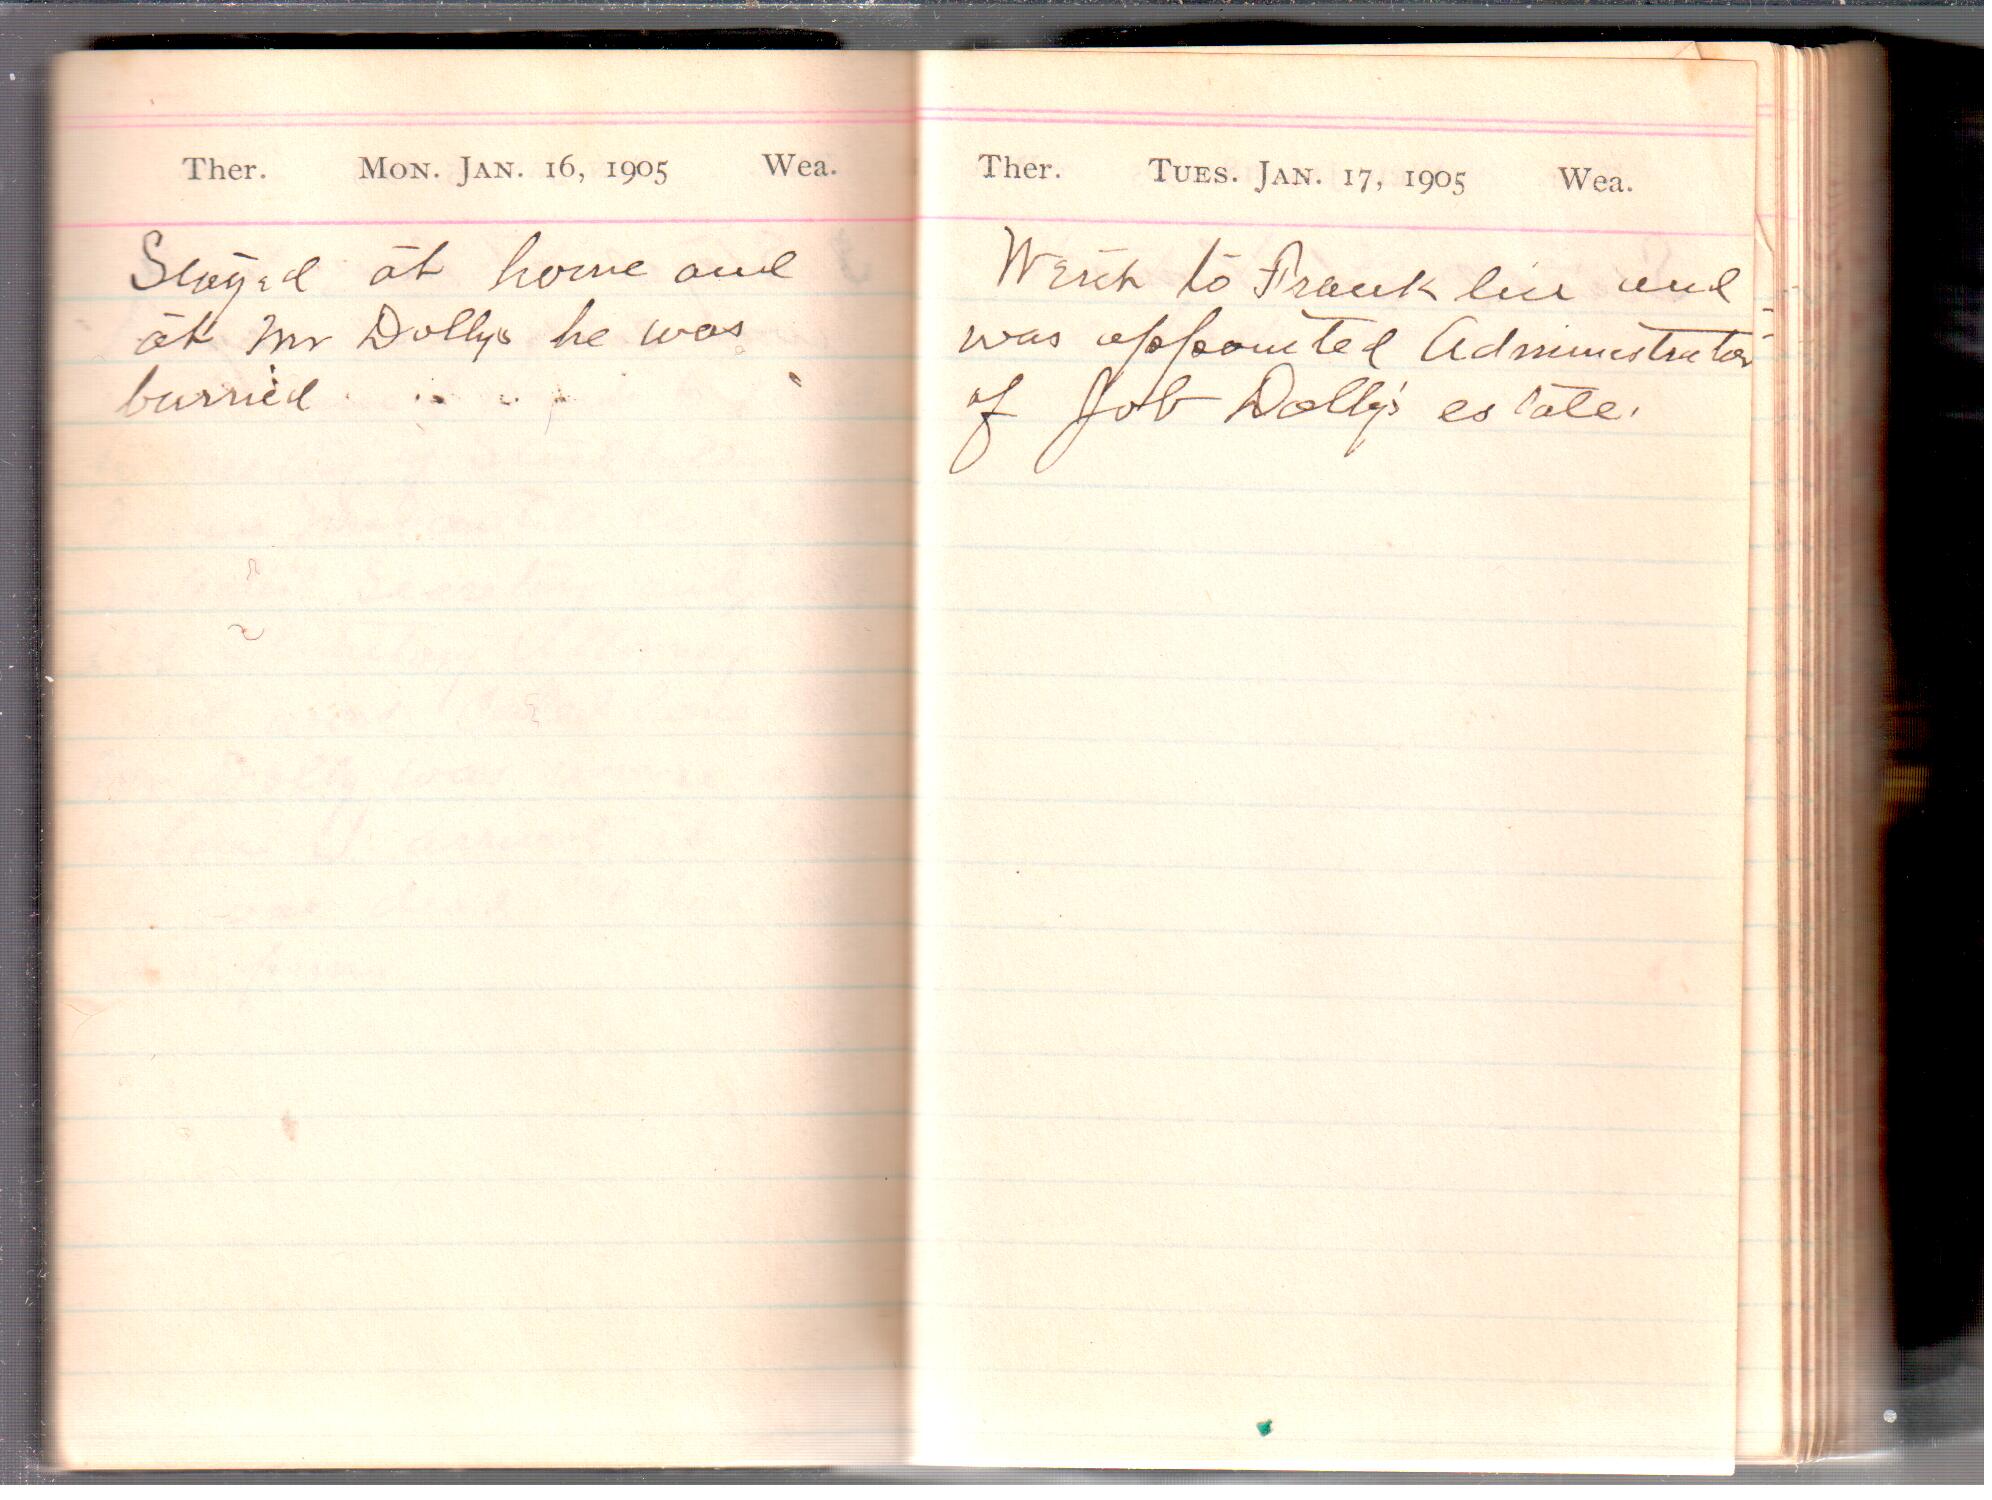 Ther. Mon. Jan. 16, 1905 Wea.
Stayed at home and
at Mr Dollys he was
burried
Ther. Tues. Jan. 17, 1905 Wea.
Went to Franklin and
was appointed Administrator
of Job Dolly's estate.